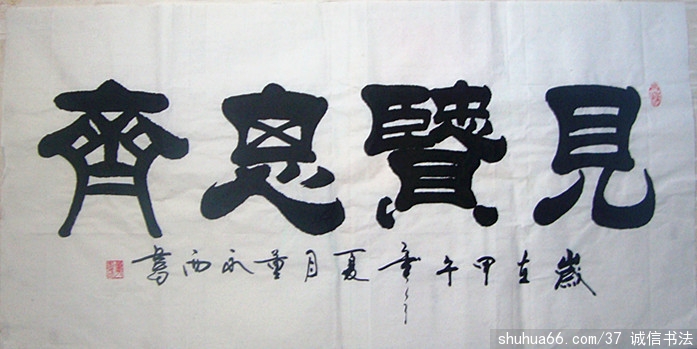 見賢思齊
歲在甲午年夏月董永西書
shuhua66.com/37 诚信书法